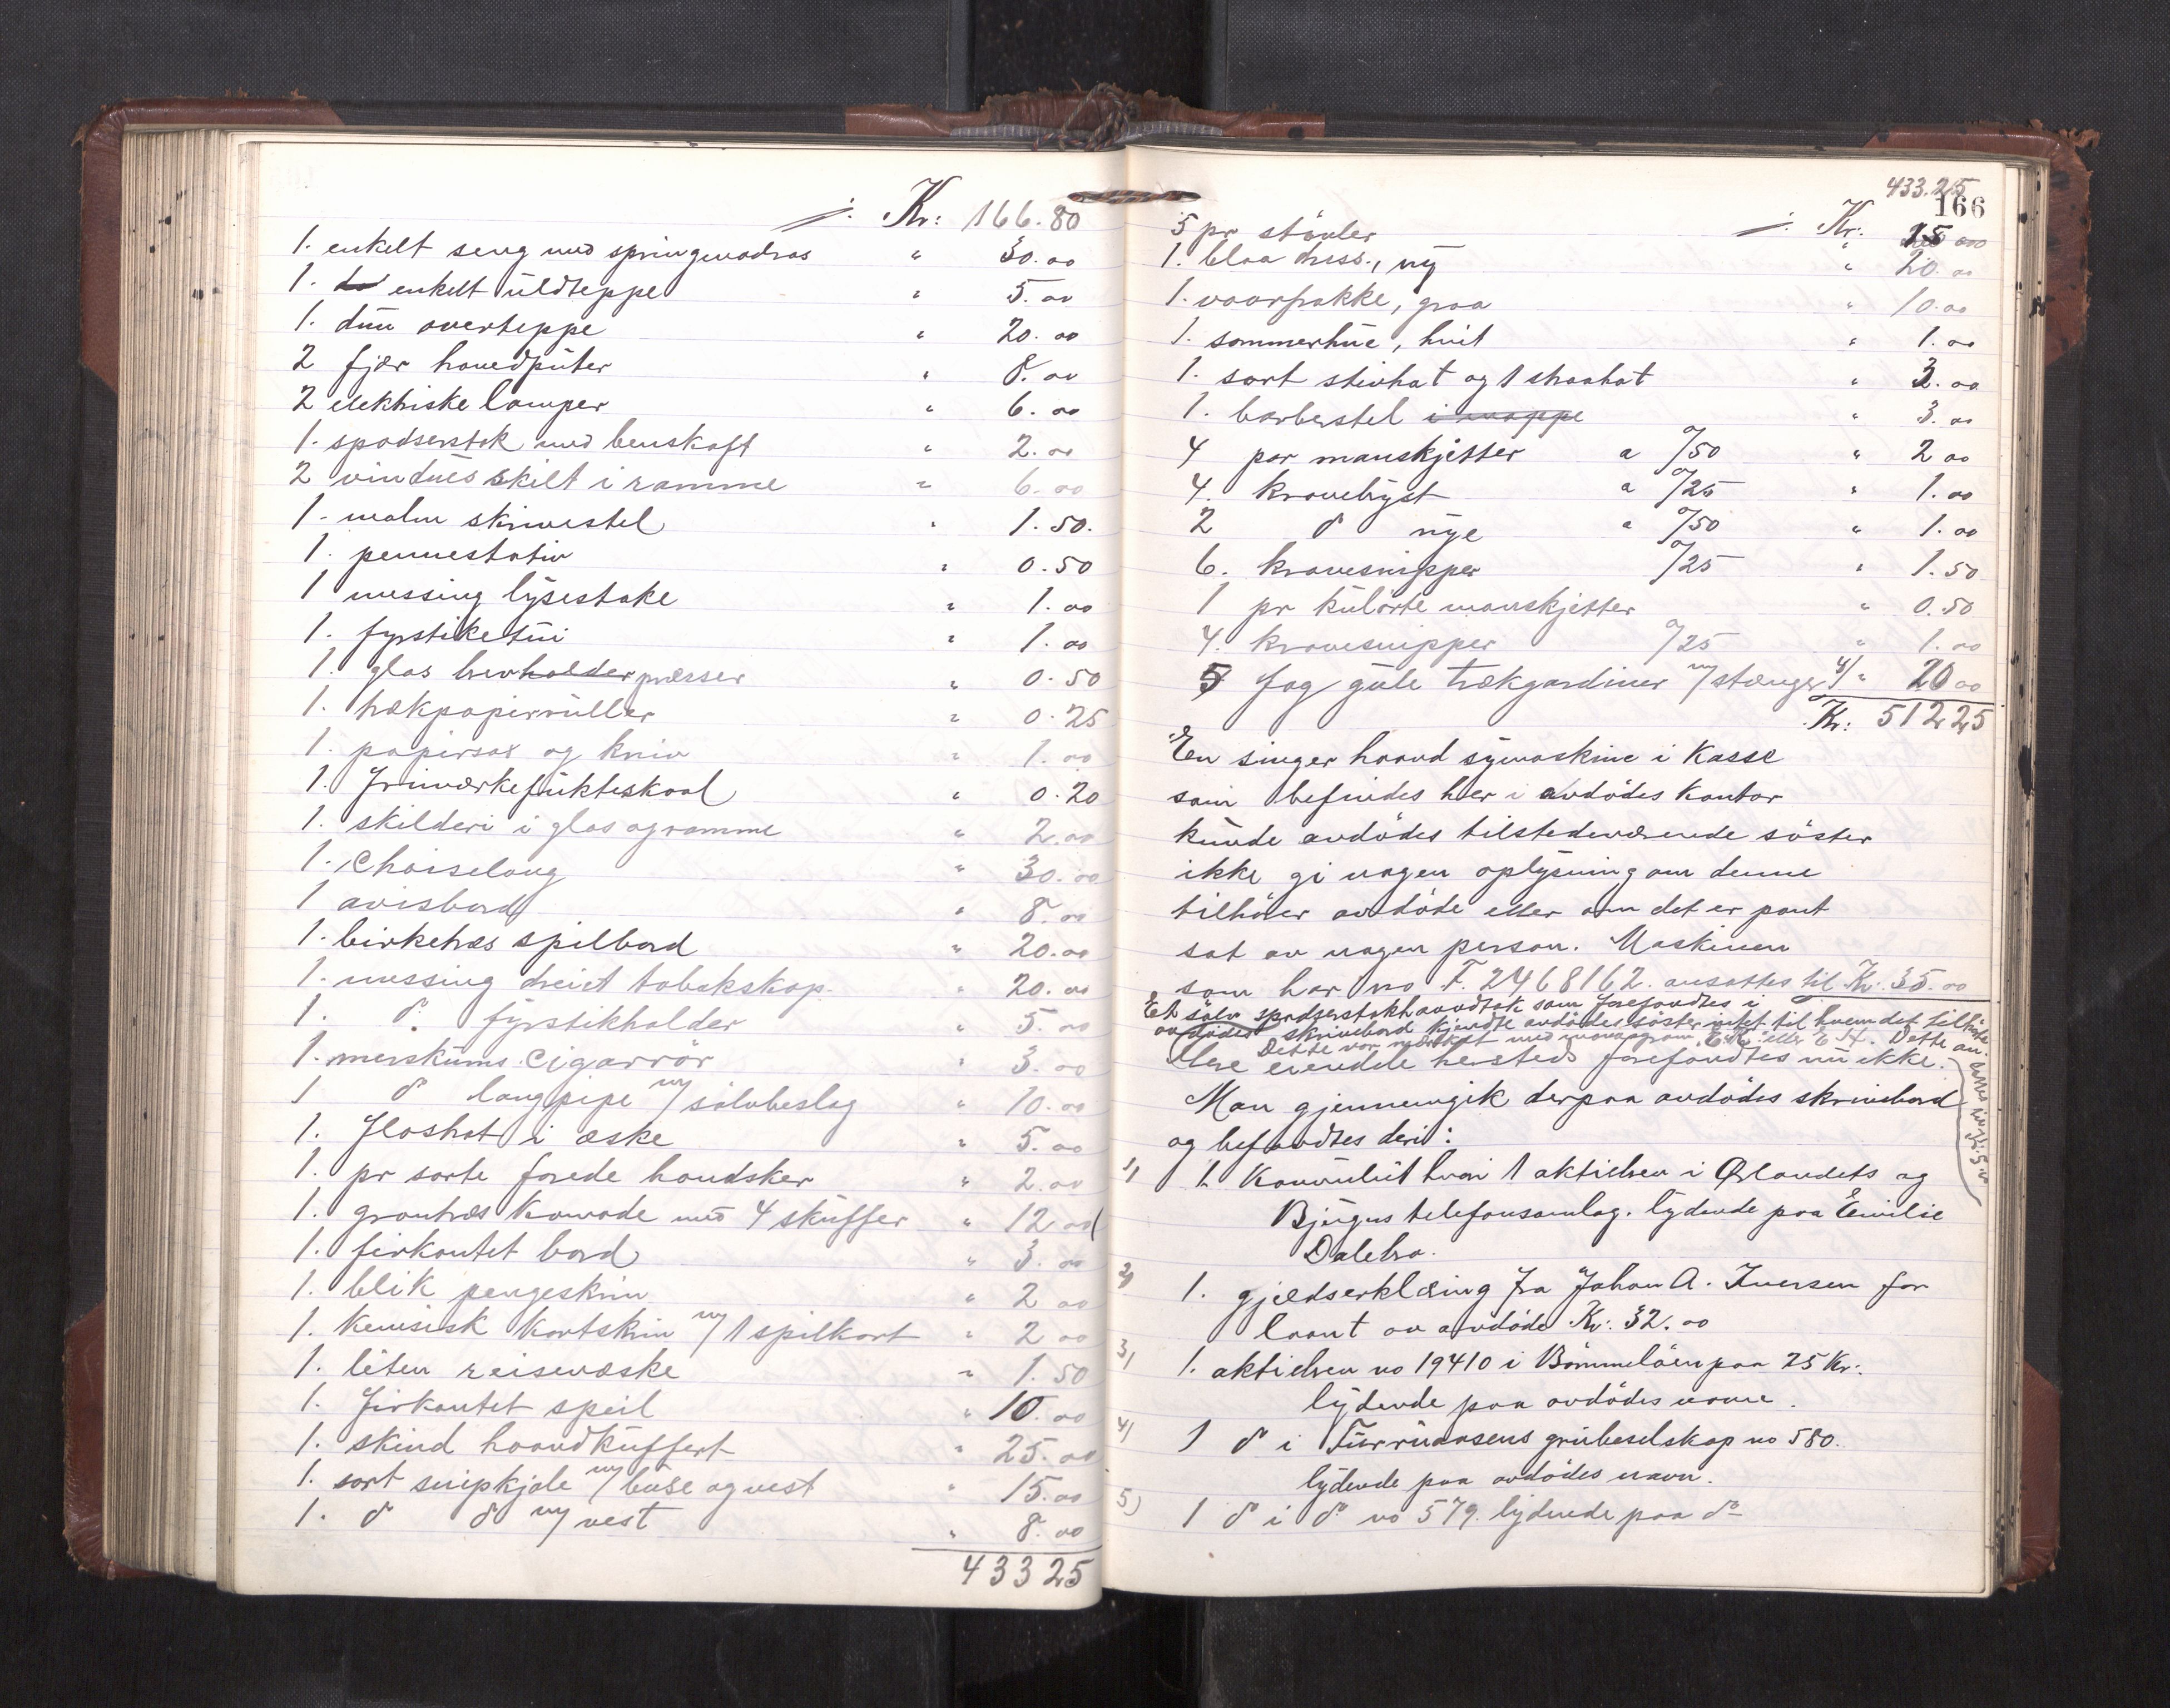 ./. Kr: 166.80
1. enkelt seng med springmadras " 30.00
1. enkelt uldteppe " 5.00
1. dun overteppe " 20.00
2 fjær hovedputer " 8.00
2 elektriske lamper " 6.00
1. spadserstok med benskaft " 2.00
2 vindues skilt i ramme " 6.00
1. malm skrivestel " 1.50.
1. pennestativ " 0.50
1 messing lysestake " 1.00
1. fyrstiketui " 1.00
1. glas brevholder presser " 0.50
1. trækpapirruller " 0.25
1. papirsax og kniv " 1.00
1. frimærkefukteskaal " 0.20
1. skilderi i glas og ramme " 2.00
1. Chaiselong " 30.00
1 avisbord " 8.00
1. birketræs spilbord " 20.00
1. messing dreiet tobakskop " 20.00
1. do fyrstikholder " 5.00
1. merskums cigarrör " 3.00
1 do langpipe m/ sölvbeslag " 10.00
1. floshat i æske " 5.00
1. pr sorte forede handsker " 2.00
1. grantræs komode med 4 skuffer " 12.00
1. firkantet bord " 3.00
1. blik pengeskrin " 2.00
1. kinesisk kortskrin m/ 1 spilkort " 2.00
1. liten reisevæske " 1.50
1. firkantet speil " 10.00
1. skind haandkuffert " 25.00
1. sort snipkjole m/ buse og vest " 15.00
1. do do m/ vest " 8.00
433 25
433.25
166
5 pr stövler ./. Kr: 15 00
1. blaa dress., ny " 20.00
1. vaarfrakke, graa " 10.00
1. sommerhue, hvit " 1.00
1. sort stivhat og 1 straahat " 3.00
1. barberstel i mappe " 3.00
4 par manskjetter a 0/50 " 2 00
4. kravebryst a 0/25 " 1.00
2 do nye a 0/50 " 1.00
6. kravesnipper 0/25 " 1.50
1 pr kulörte manskjetter " 0.50
4. kravesnipper 0/25 " 1.00
5 fag gule trækgardiner m/ stænger 4/ " 20 00
Kr: 512 25
En singer haand symaskine i Kasse
som befindes her i avdödes kontor
kunde avdödes tilstedeværende söster
ikke gi nogen oplysning om denne
tilhörer avdöde eller om det er pant
sat av nogen person. Maskinen
som har no F. 2468162. ansattes til Kr. 35.00
Et sölv spadserstokhaandtak som forefandtes i
avdödes skrivebord kjendte avdödes söster intet til hvem det tilhörte
Dette var mærket med monogram Dette an-
Mere eiendele hersteds forefandtes nu ikke.
Man gjennemgik derpaa avdödes skrivebord
og befandtes deri:
1) 1. Konvulut hvori 1 aktiebrev i Ørlandets og
Bjugns telefonsamlag. lydende paa Emilie
Dalebra.
2) 1. gjældserklæring fra Johan A. Iversen for
laant av avdöde Kr: 32.00
3) 1. aktiebrev no 19410 i Bömmelöen paa 25 Kr:
lydende paa avdödes navn.
4) 1 do i grubeselskap no 580.
lydende paa avdödes navn.
5) 1 do i do no 579. lydende paa do